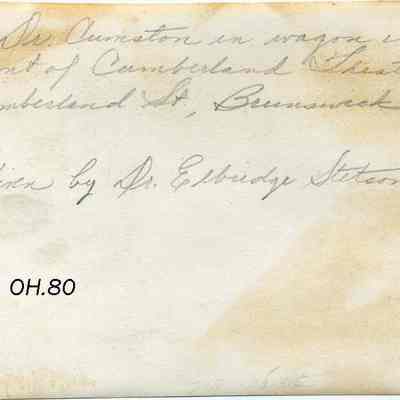 Dr. Cumston in wagon i
nt of Cumberland Theat
mberland St, Brunswick
iven by Dr. Elbridge Stetson
OH.80